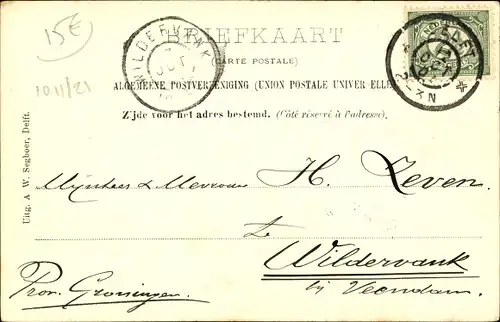 15€
BRIEFKAART
(CARTE POSTALE)
ALGEMEENE POSTVEREENIGING (UNION POSTALE UNIVERSELLE)
Zijde voor het adres bestemd. (Côté réservé à l'adresse).
WILDERVANK
DELFT
1011/21
Mijnheer & Mevrouw H. Zeven.
te
Wildervank
bij Veendam.
Prov. Groningen.
Uitg. A. W. Segboer, Delft.